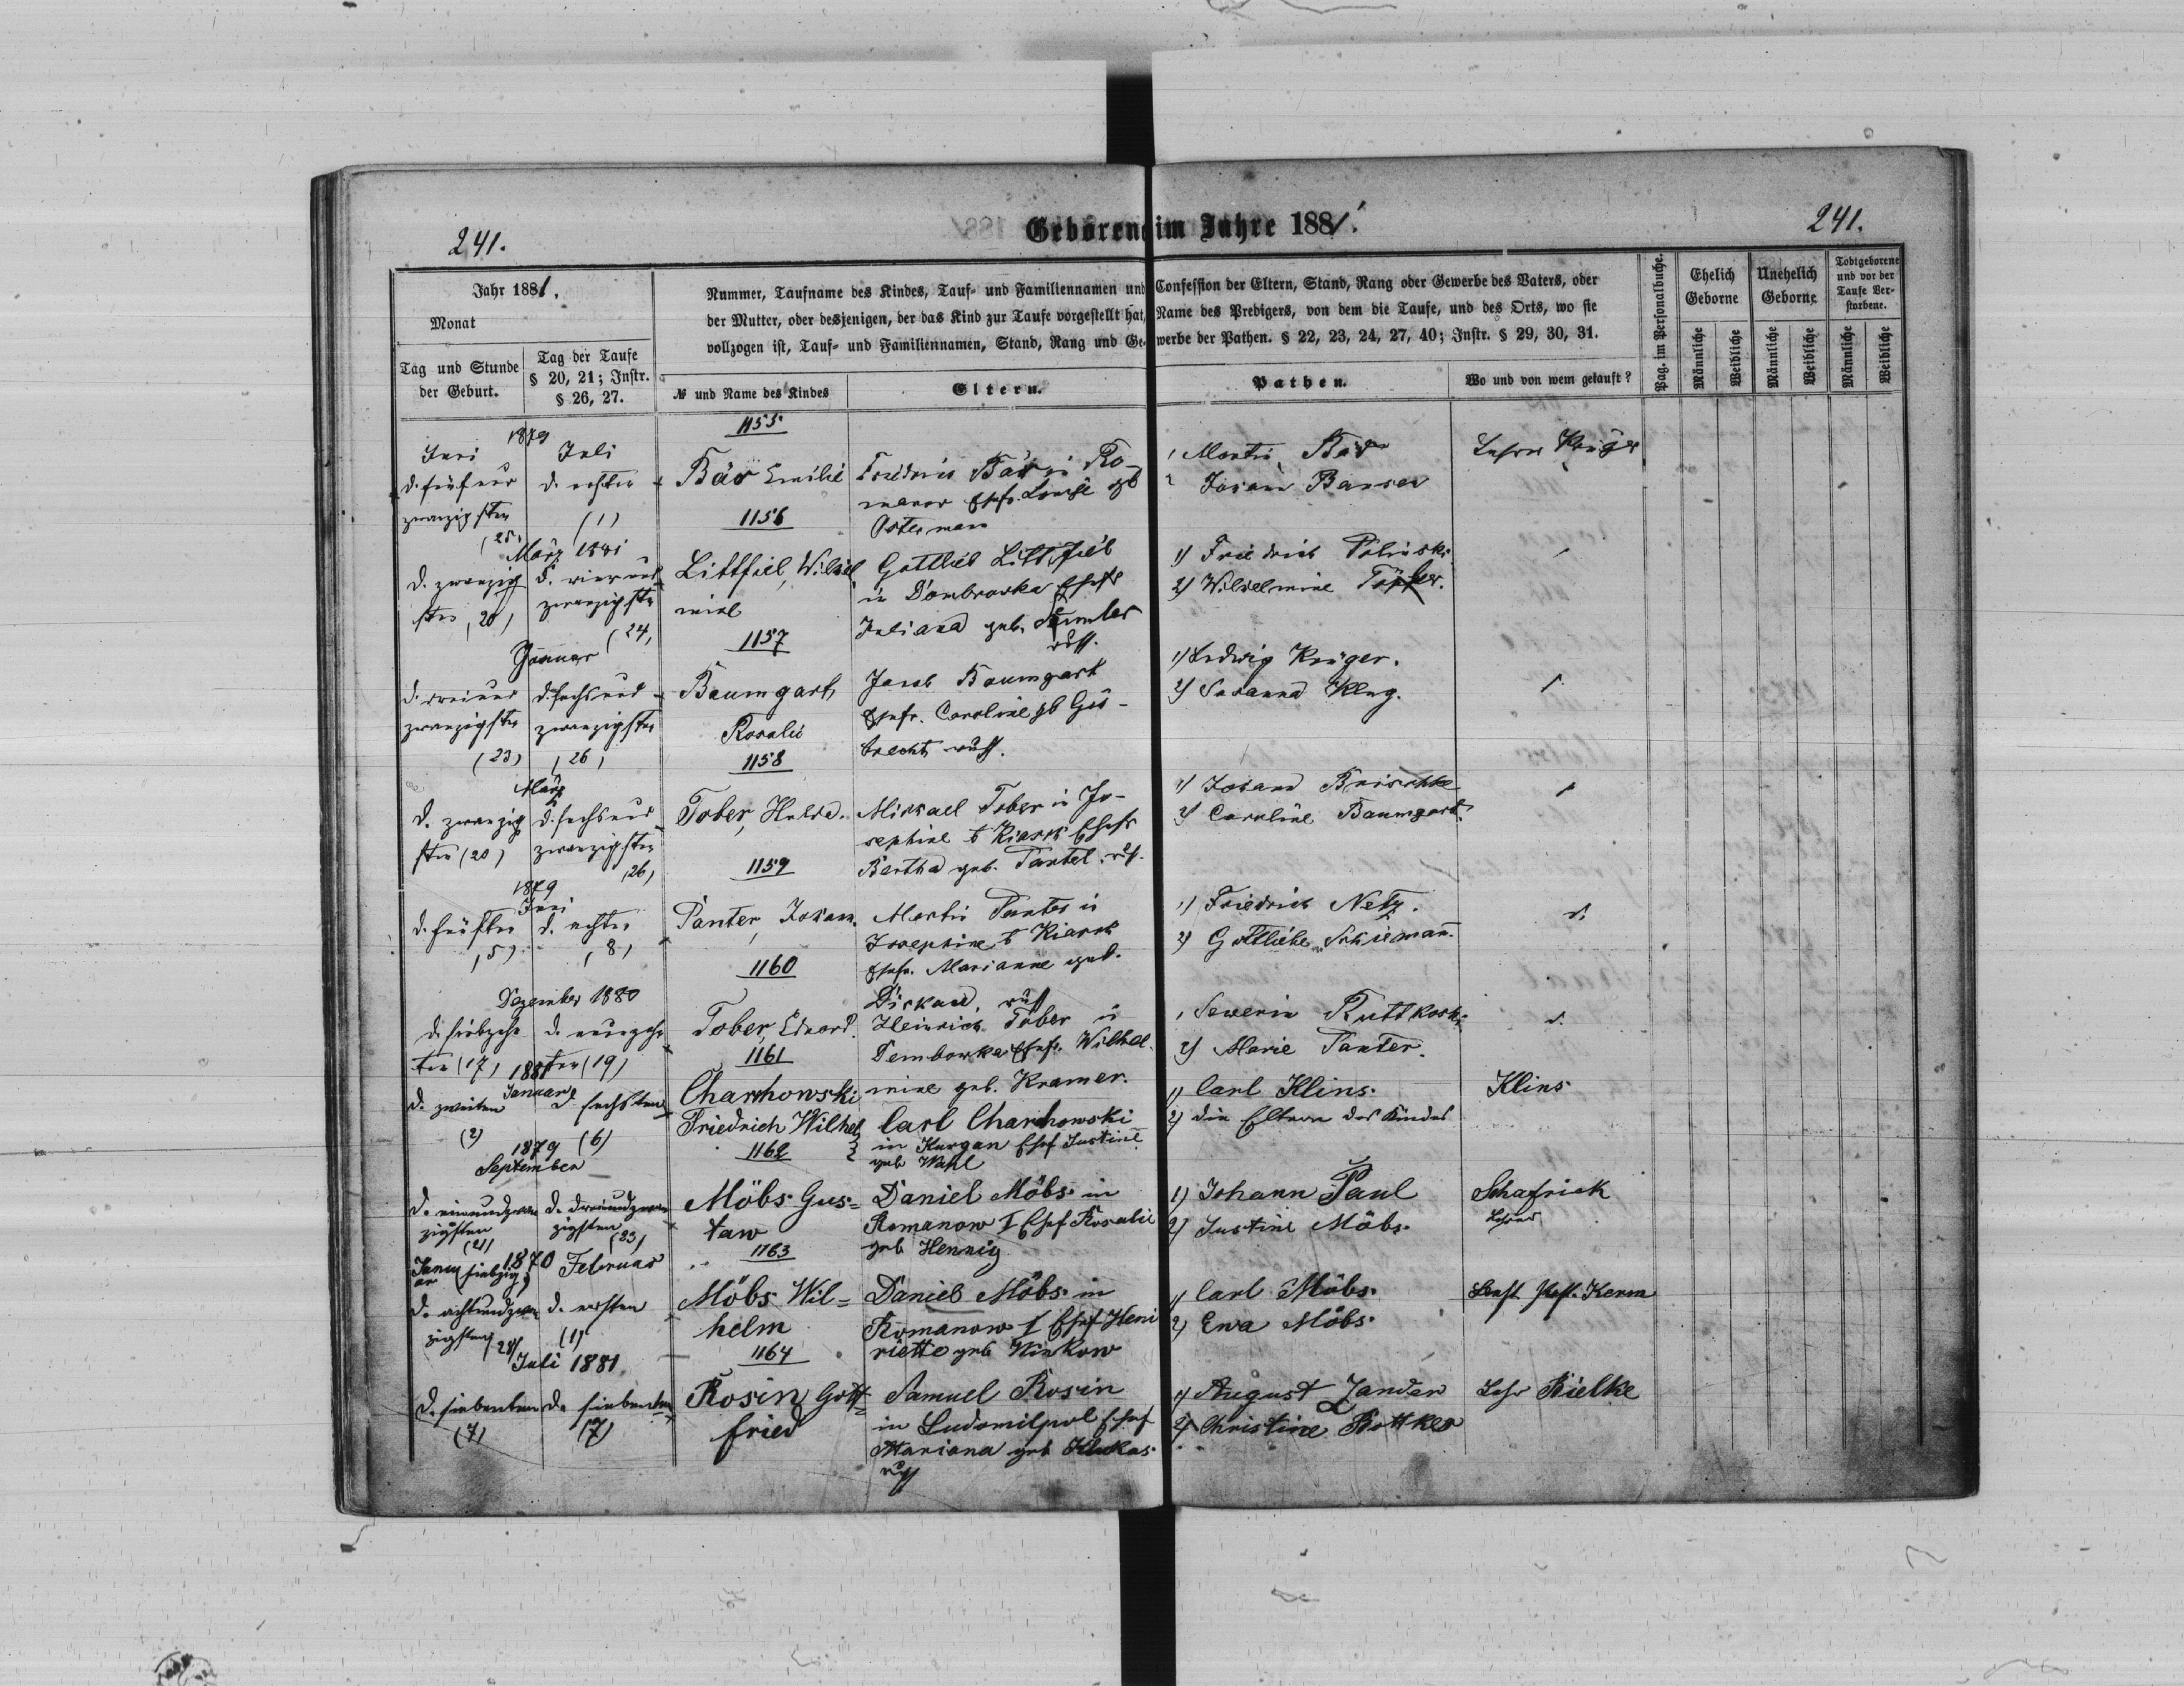 241.
Geboren im Jahre 1881.
241.
Jahr 1881.
Monat
Tag und Stunde der Geburt.
Tag der Taufe § 20, 21; Instr. § 26, 27.
Nummer, Taufname des Kindes, Tauf- und Familiennamen und Confession der Eltern, Stand, Rang oder Gewerbe des Vaters, oder
der Mutter, oder desjenigen, der das Kind zur Taufe vorgestellt hat, Name des Predigers, von dem die Taufe, und des Orts, wo sie
vollzogen ist, Tauf- und Familiennamen, Stand, Rang und Gewerbe der Pathen. § 22, 23, 24, 27, 40; Instr. § 29, 30, 31.
№ und Name des Kindes
Eltern.
Pathen.
Wo und von wem getauft?
Pag. im Personalbuche.
Ehelich Geborne
Unehelich Geborne
Todtgeborene und vor der Taufe Verstorbene.
Männliche
Weibliche
Männliche
Weibliche
Männliche
Weibliche
1155
1879
Juni Juli
d. fünfund d. ersten
zwanzigsten (1)
(25)
Bär Emilie
Friedrich Bär in Ro-
manow Ehefr. Louise gb
Osterman
Martin Bär
Johann Banser
Lehrer Krüger
1156
März 1881
d. zwanzig d. vierund
sten (20) zwanzigsten
(24)
Littfiel, Wilhel
mine
Gottlieb Littfiel
in Dombrowka Ehefr
Juliana geb. Semler
russ.
1) Friedrich Polinski
2) Wilhelmine Töpfer.
1157
Januar
d. dreiund d. sechsund
zwanzigsten zwanzigsten
(23) (26)
Baumgart,
Rosalie
Jacob Baumgart
Ehefr. Caroline gb Gis-
brecht russ.
1) Ludwig Krüger.
2) Susanna Klug.
1158
März
d. zwanzig d. sechsund
sten (20) zwanzigsten
(26)
Tober, Hulda.
Michael Tober in Jo-
sephine b Kiask Ehefr
Bertha geb. Pantel. russ.
1) Johann Brischke
2) Caroline Baumgart
1159
1879
Juni
d. fünften d. achten
(5) (8)
Panter, Johann.
Martin Panter in
Josephine b Kiask
Ehefr. Marianne geb.
1) Friedrich Netz.
2) Gottliebe Schiemann.
d.
1160
Dezember 1880
d. siebzehn d. neunzehn
ten (17) ten (19)
Tober, Eduard.
Heinrich Tober in
Dembowka Ehefr. Wilhel-
mine geb. Kramer.
1, Severin Ruttkoski
2) Marie Panter.
d.
1161
1881
Januar
d. zweiten d. sechsten
(2) (6)
Charchowski
Friedrich Wilhel
Carl Charchowski
in Kurgan Ehef Justine
geb Wahl
1) Carl Klins.
2) die Eltern des Kindes
Klins
1162
1879
September
d. einundzwan d. dreiundzwan
zigsten zigsten
(21) (23)
Möbs Gus-
taw
Daniel Möbs in
Romanow I Ehef Rosalie
geb Hennig
1) Johann Paul
2) Justine Möbs.
Schafrick
Lehrer
1163
1870
Janu (siebzig) Februar
ar
d. achtundzwan d. ersten
zigsten (28) (1)
Möbs Wil-
helm
Daniel Möbs in
Romanow I Ehef Heni
riette geb Winkow
1) Carl Möbs.
2) Ewa Möbs.
Past. Kerm
1164
Juli 1881
d. siebenten d. siebenten
(7) (7)
Rosin Gott-
fried
Samuel Rosin
in Ludomilpol Ehef
Mariana geb Klukas
russ
1) August Zander
2) Christine Rottke
Lehr Bielke